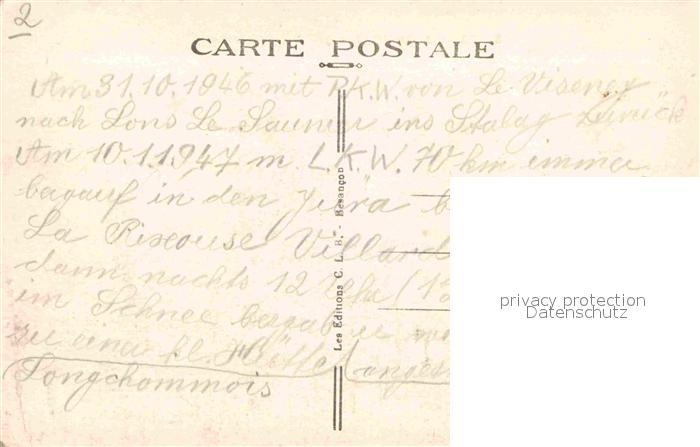 2
CARTE POSTALE
Am 31.10.1946 mit P.K.W. von Le Viseney
nach Lons Le Saunier ins Stalag zurück
Am 10.1.1947 m. L.K.W. 70 km immer
bergauf in den Jura b
La Rixouse Villard
dann nachts 12 Uhr (12
im Schnee bergab
zu einer kl. Hütte
Longchommois
Les Editions C. L. B. - Besançon
privacy protection
Datenschutz